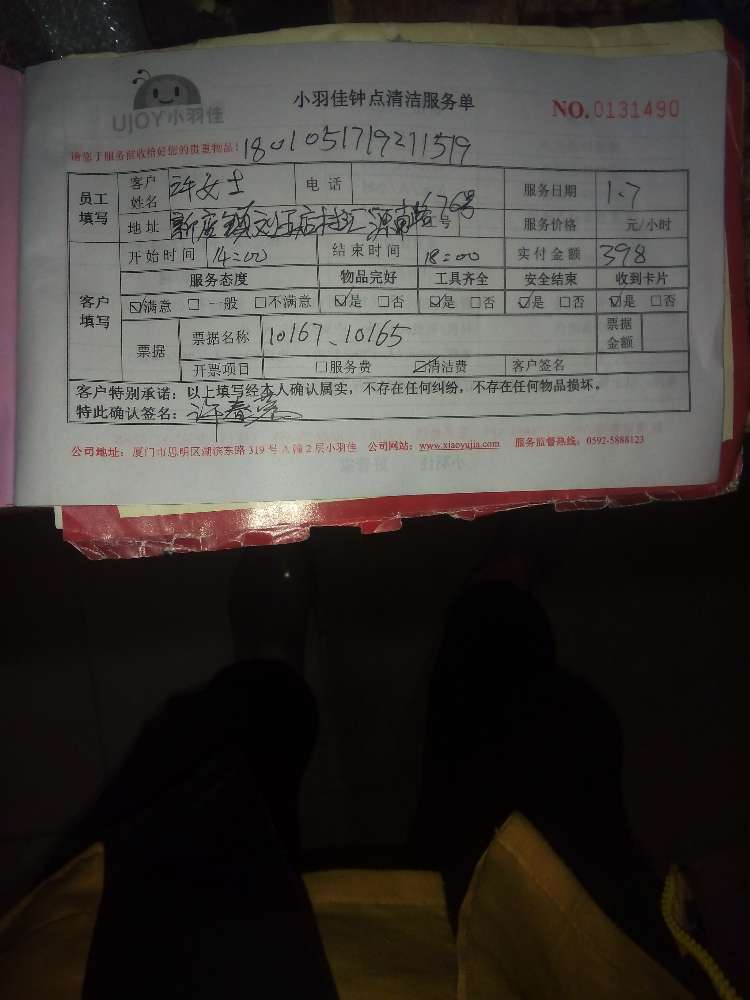 UJOY小羽佳
小羽佳钟点清洁服务单
NO.0131490
请您于服务前收拾好您的贵重物品!
1801051719211519
员工填写 客户姓名 许女士 电话 服务日期 1.7
地址 新店镇刘五店村汇源南路76号 号 服务价格 元/小时
客户填写 开始时间 14:00 结束时间 18:00 实付金额 398
服务态度 物品完好 工具齐全 安全结束 收到卡片
☑满意 □一般 □不满意 ☑是 □否 ☑是 □否 ☑是 □否 ☑是 □否
票据 票据名称 10167、10165 票据金额
开票项目 □服务费 ☑清洁费 客户签名
客户特别承诺:以上填写经本人确认属实,不存在任何纠纷,不存在任何物品损坏。
特此确认签名:许春
公司地址:厦门市思明区湖滨东路319号A幢2层小羽佳 公司网站:www.xiaoyujia.com 服务监督热线:0592-5888123